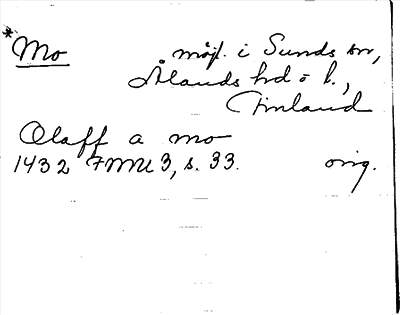 *Mo möjl. i Sunds sn,
Ålands hd o l.,
Finland
Olaff a mo
1432 FMU 3, s. 33. orig.